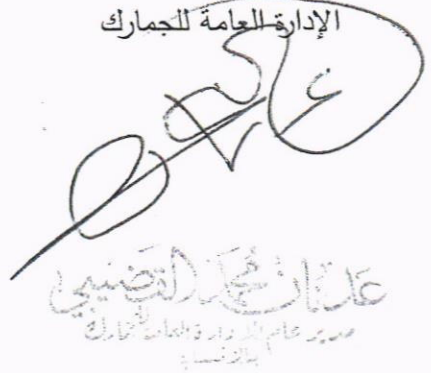 الإدارة العامة للجمارك
عدنان محمد القضيبي
مدير عام الإدارة العامة للجمارك
بالإنابة